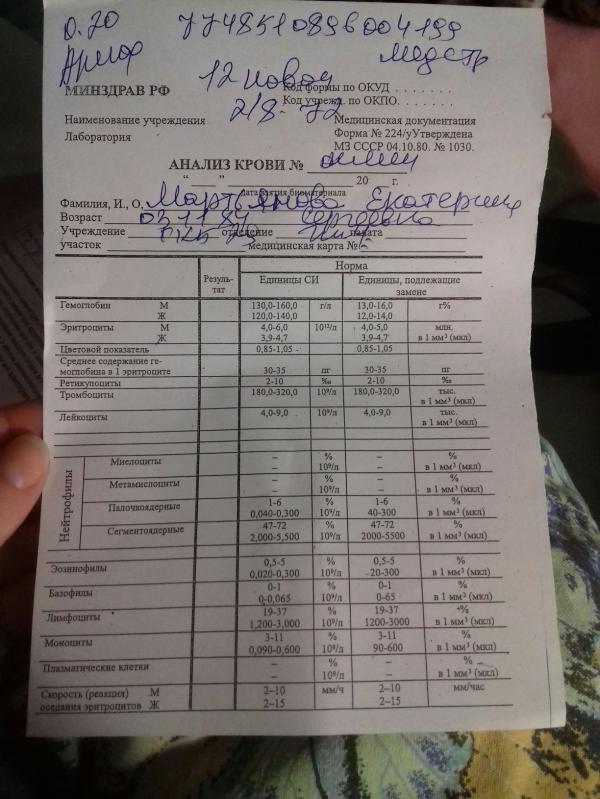 0.70 7748510896004199
МИНЗДРАВ РФ 12 новой Код формы по ОКУД . . . . . . .
Код учрежд. по ОКПО. . . . . . . .
Наименование учреждения 2/8-72 Медицинская документация
Лаборатория Форма № 224/уУтверждена
МЗ СССР 04.10.80. № 1030.
АНАЛИЗ КРОВИ №
“ ” 20 г.
дата взятия биоматериала
Фамилия, И., О, Мартьянова Екатерина
Возраст Сергеевна
Учреждение отделение палата
участок медицинская карта №
Резуль-тат Норма
Единицы СИ Единицы, подлежащие замене
Гемоглобин М 130,0-160,0 г/л 13,0-16,0 г%
Ж 120,0-140,0 12,0-14,0
Эритроциты М 4,0-6,0 10¹²/л 4,0-5,0 млн.
Ж 3,9-4,7 3,9-4,7 в 1 мм³ (мкл)
Цветовой показатель 0,85-1,05 0,85-1,05
Среднее содержание ге-
мопобина в 1 эритроците 30-35 пг 30-35 пг
Ретикулоциты 2-10 ‰ 2-10 ‰
Тромбоциты 180,0-320,0 10⁹/л 180,0-320,0 тыс.
в 1 мм³ (мкл)
Лейкоциты 4,0-9,0 10⁹/л 4,0-9,0 тыс.
в 1 мм³ (мкл)
Нейтрофилы
Миелоциты – % – %
– 10⁹/л – в 1 мм³ (мкл)
Метамиелоциты – % – %
– 10⁹/л – в 1 мм³ (мкл)
Палочкоядерные 1-6 % 1-6 %
0,040-0,300 10⁹/л 40-300 в 1 мм³ (мкл)
Сегментоядерные 47-72 % 47-72 %
2,000-5,500 10⁹/л 2000-5500 в 1 мм³ (мкл)
Эозинофилы 0,5-5 % 0,5-5 %
0,020-0,300 10⁹/л 20-300 в 1 мм³ (мкл)
Базофилы 0-1 % 0-1 %
0-0,065 10⁹/л 0-65 в 1 мм³ (мкл)
Лимфоциты 19-37 % 19-37 %
1,200-3,000 10⁹/л 1200-3000 в 1 мм³ (мкл)
Моноциты 3-11 % 3-11 %
0,090-0,600 10⁹/л 90-600 в 1 мм³ (мкл)
Плазматические клетки – % – %
– 10⁹/л – в 1 мм³ (мкл)
Скорость (реакция) М 2–10 мм/ч 2–10 мм/час
оседания эритроцитов Ж 2–15 2–15